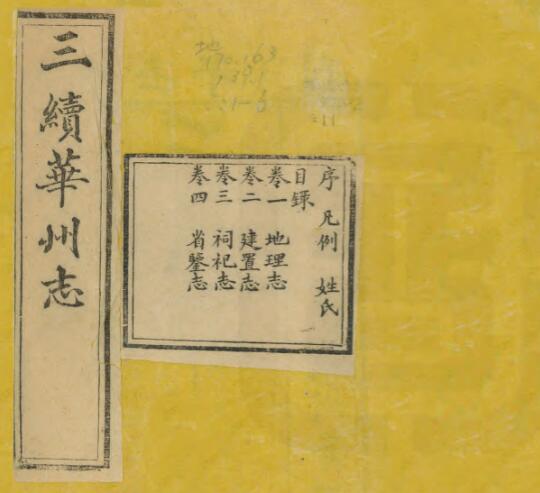 三續華州志
序 凡例 姓氏
目錄
卷一 地理志
卷二 建置志
卷三 祠祀志
卷四 省鑒志
地
170.163
139.1